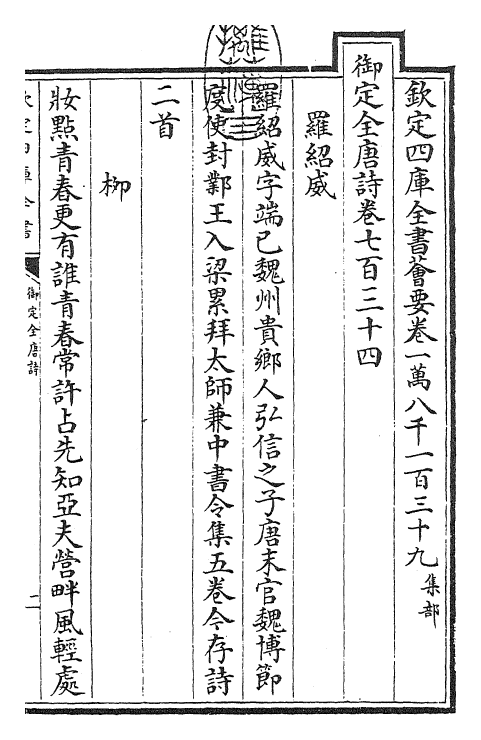 欽定四庫全書薈要卷一萬八千一百三十九集部
御定全唐詩卷七百三十四
羅紹威
羅紹威字端已魏州貴鄉人弘信之子唐末官魏博節
度使封鄴王入梁累拜太師兼中書令集五卷今存詩
二首
柳
妝點青春更有誰青春常許占先知亞夫營畔風輕處
欽定四庫全書
御定全唐詩
二